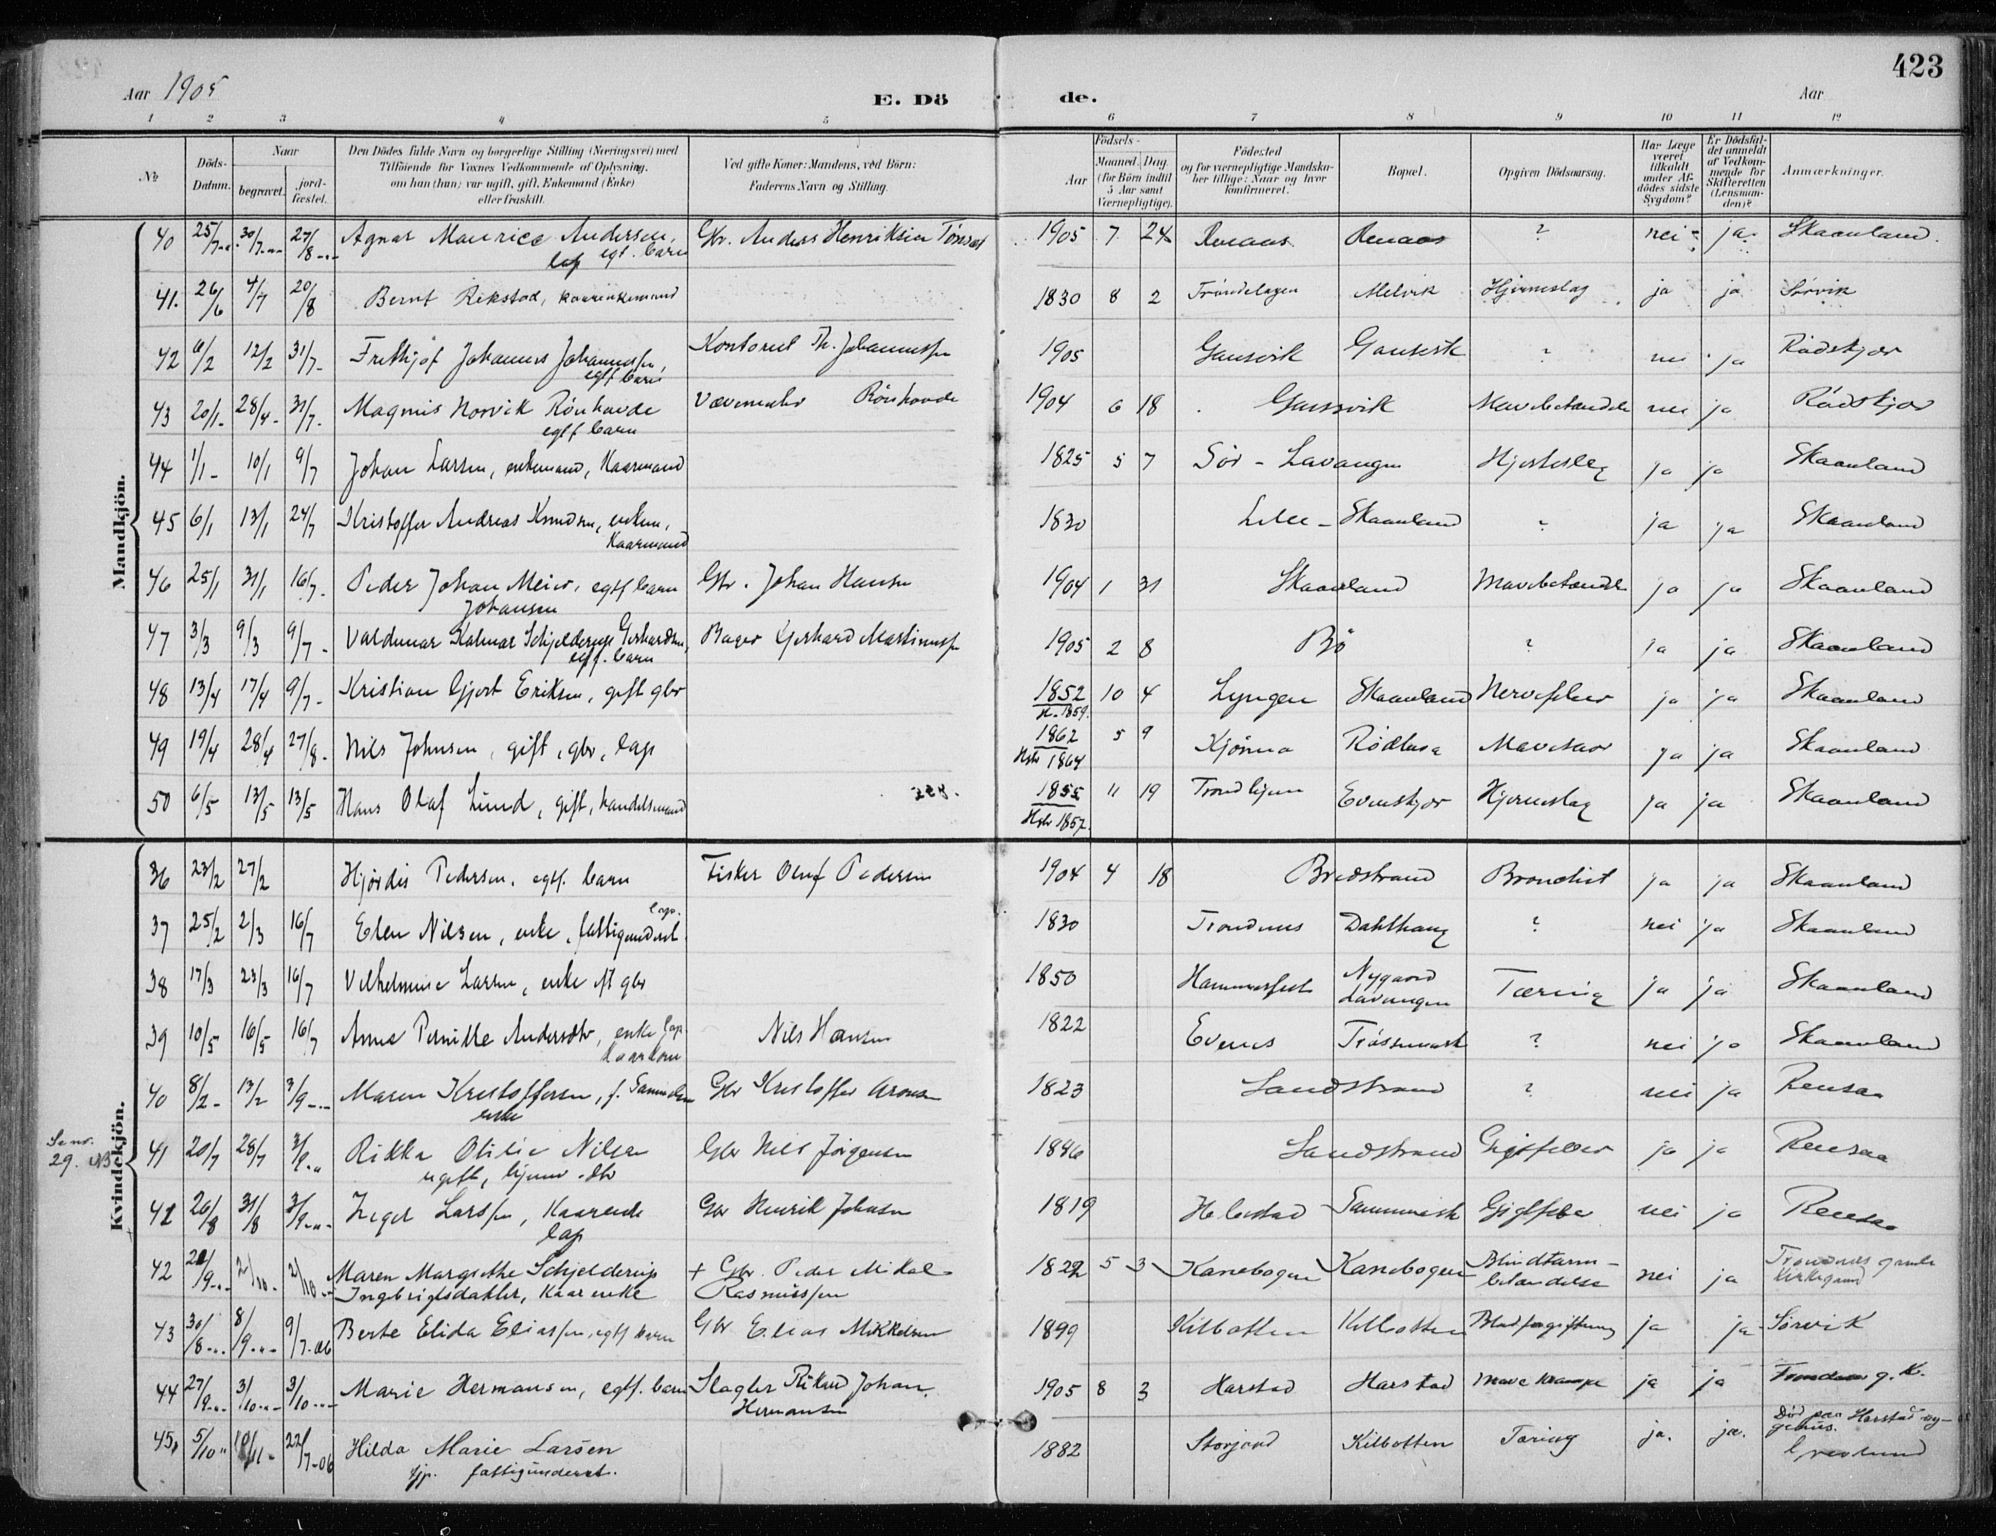 423
Aar 1905
E. Dö
de.
Aar
1 2 3 4 5 6 7 8 9 10 11 12
№
Döds-Datum.
Naar
begravet.
jord-fæstet.
Den Dödes fulde Navn og borgerlige Stilling (Næringsvei) med
Tilföiende for Voxnes Vedkommende af Oplysning,
om han (hun) var ugift, gift, Enkemand (Enke)
eller fraskilt.
Ved gifte Koner: Mandens, ved Börn:
Faderens Navn og Stilling.
Aar
Födsels-
Maaned. Dag.
(for Börn indtil
5 Aar samt
Værnepligtige).
Födested
og for værnepligtige Mandska-
ber tillige: Naar og hvor
konfirmeret.
Bopæl.
Opgiven Dödsaarsag.
Har Læge
været
tilkaldt
under Af-
dödes sidste
Sygdom?
Er Dödsfal-
det anmeldt
af Vedkom-
mende for
Skifteretten
(Lensman-
den)?
Anmærkninger.
Mandkjön.
40 25/7 30/7 27/8 Agnar Maurice Andersen, Gbr. Anders Henriksen 1905 7 24 Renaas Renaas ? nei ja Skaanland.
lap egt. barn
41. 26/6 4/7 20/8 Bernt Rikstad, kaarenkemand 1830 8 2 Trøndelagen Melvik Hjerneslag ja ja Sørvik
42 6/2 12/2 31/7 Frithjof Johannes Johannessen, Kontorist Th. Johannessen 1905 Gausvik Gausvik ? nei ja Rödskjær
egtf barn
43 20/1 28/4 31/7 Magnus Norvik Rönhovde Rönhovde 1904 6 18 Gausvik Mavebetændelse nei ja Rödskjær
egtf barn
44 1/1 10/1 9/7 Johan Larsen, enkemand, Kaarmand 1825 5 7 Sör-Lavangen Hjerteslag ja ja Skaanland
45 6/1 13/1 24/7 Kristoffer Andreas Knudsen, enkem, 1830 Lille-Skaanland ? ja ja Skaanland
Kaarmand
46 25/1 31/1 16/7 Peder Johan Meier, egtf barn Gbr. Johan Hansen 1904 1 31 Skaanland Mavebetændelse ja ja Skaanland
Johansen
47 3/3 9/3 9/7 Valdemar Halmar Schjelderup Gerhardsen, Bager Gerhard Martinussen 1905 2 8 Bö ? ja ja Skaanland
egtf. barn
48 13/4 17/4 9/7 Kristian Gjert Eriksen, gift gbr 1852 10 4 Lyngen Skaanland Nervefeber ja ja Skaanland
H. 1859.
49 19/4 28/4 27/8 Nils Johnsen, gift, gbr, lap 1862 5 9 Kjönna Mavesaar ja ja Skaanland
Hstr 1864
50 6/5 13/5 13/5 Hans Olaf Lund, gift, handelsmand 228. 1855 11 19 Trondhjem Evenskjær Hjerneslag ja ja Skaanland
Hstr 1857.
Kvindekjön.
36 23/2 27/2 Hjördis Pedersen, egtf. barn Fisker Oluf Pedersen 1904 4 18 Bredstrand Bronchit ja ja Skaanland
37 25/2 2/3 16/7 Elen Nilsen, enke, fattigunderst. lap. 1830 Trondenes ? nei ja Skaanland
38 17/3 23/3 16/7 Vilhelmine Larsen, enke eft gbr 1850 Hammerfest Nygaard Lavangen Tæring ja ja Skaanland
39 10/5 16/5 16/7 Anne Pernille Andersdtr, enke lap Nils Hansen 1822 Evenes ? nei ja Skaanland
Kaarkone
40 8/2 13/2 3/9 Maren Kristoffersen, f. Samuelsen Gbr Kristoffer Aronsen 1823 Sandstrand ? nei ja Rensaa
enke
Se nr.
29. NB
41 20/7 28/7 3/9 Rikka Otilie Nilsen Gbr Nils Jörgensen 1896 Sandstrand Gigtfeber ja ja Rensaa
ugift, hjemv. dtr
42 26/8 31/8 3/9 Inger Larssen, Kaarenke Gbr Henrik Johnsen 1819 Sammark Gigtfeber nei ja Rensaa
lap
42 20/9 2/10 2/10 Maren Margrethe Schjelderup + Gbr. Peder Mikal 1822 5 3 Kanebogen Kanebogen Blindtarm-betændelse nei ja Trondenes gamle Kirkegaard
Ingebrigtsdatter, Kaarenke Rasmussen
43 30/8 8/9 9/7-06 Berte Elida Eliassen, egtf barn Gbr Elias Mikkelsen 1899 Kilbotten Kilbotten Blodforgiftning ja ja Sørvik
44 27/9 3/10 3/10 Marie Hermansen, egtf. barn Slagter Rikard Johan Hermansen 1905 8 3 Harstad Harstad Mave krampe ja ja Trondenes g. K.
45 5/10 10/11 22/7-06 Hilda Marie Larsen 1882 Storjord Kilbotten Tæring ja. ja. Död paa Harstad sygehus.
tjp. fattigunderst.